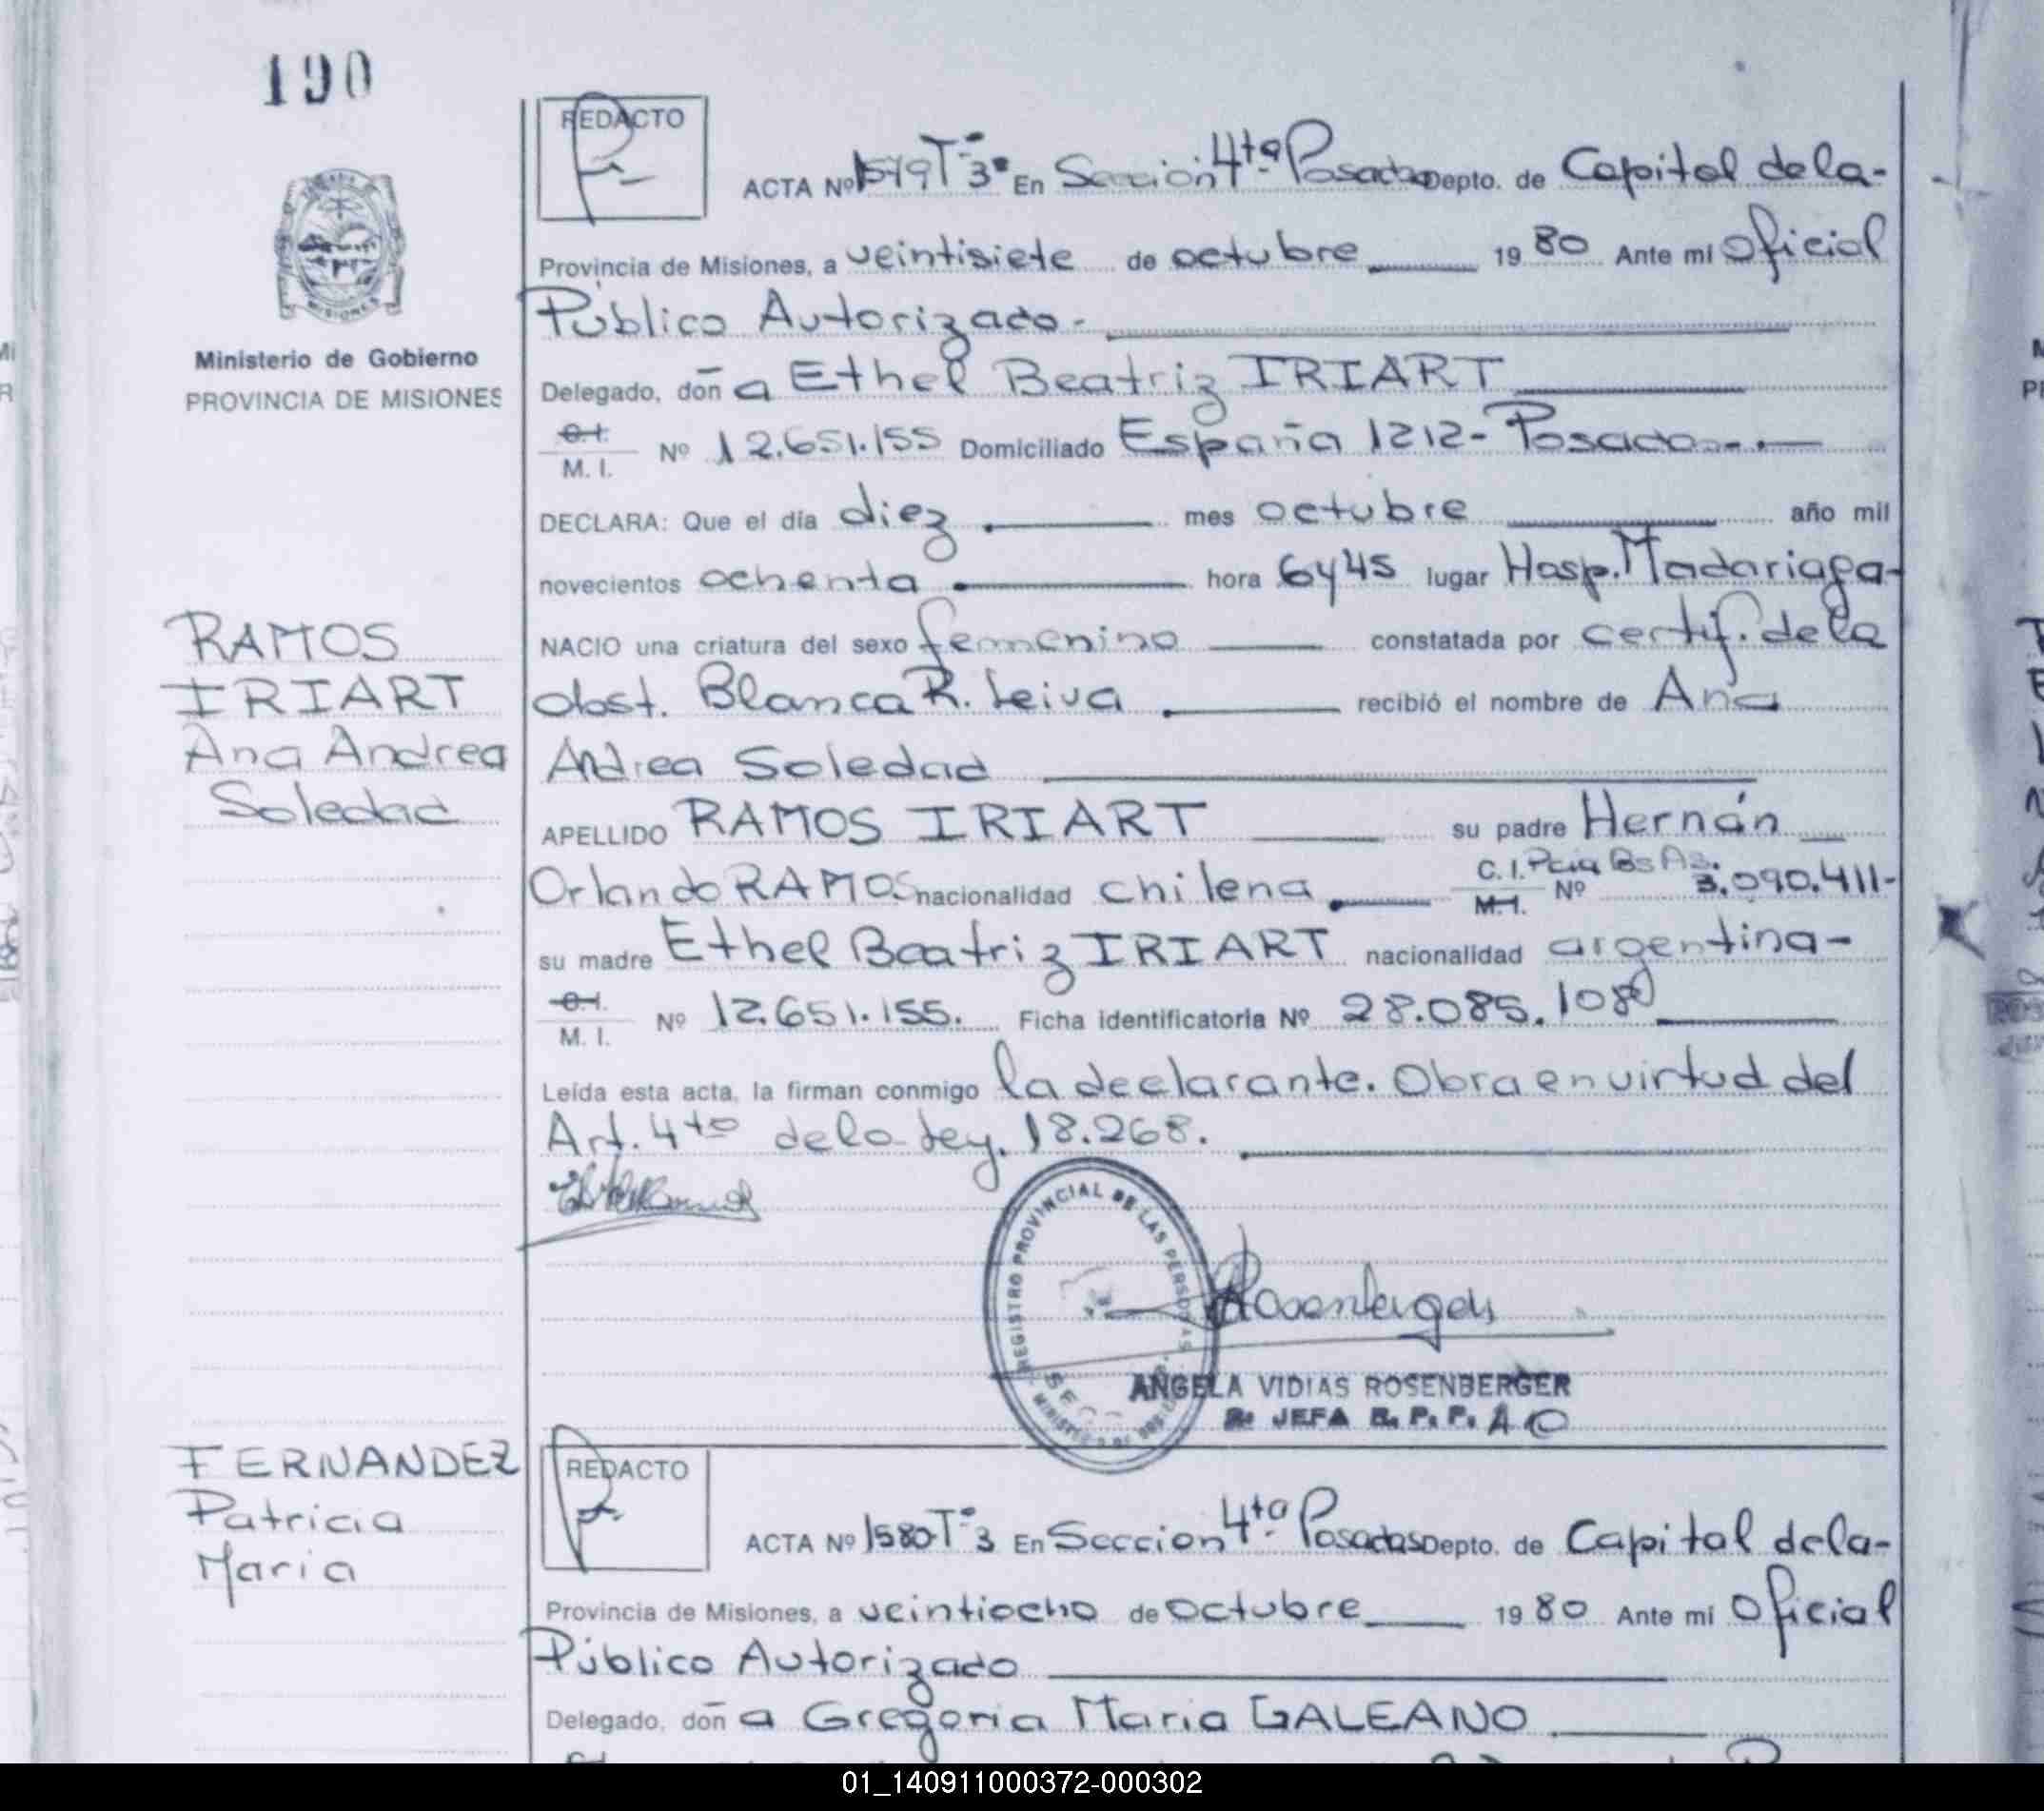 190
REDACTO
ACTA Nº 1579 Tº 3º En Sección 4ta Posadas Depto. de Capital de la-
Provincia de Misiones, a veintisiete de octubre 19 80 Ante mi Oficial
Público Autorizado-
Ministerio de Gobierno
PROVINCIA DE MISIONES
Delegado, doña Ethel Beatriz IRIART
C.I. M. I. Nº 12.651.155 Domiciliado España 1212- Posadas-.
DECLARA: Que el día diez mes octubre año mil
novecientos ochenta hora 6y45 lugar Hosp. Madariaga-
RAMOS
IRIART
Ana Andrea
Soledad
NACIO una criatura del sexo femenino constatada por certif. de la
obst. Blanca R. Leiva recibió el nombre de Ana
Andrea Soledad
APELLIDO RAMOS IRIART su padre Hernán
Orlando RAMOS nacionalidad chilena C. I. Pcia Bs As. M.I. Nº 3.090.411-
su madre Ethel Beatriz IRIART nacionalidad argentina-
C.I. M. I. Nº 12.651.155. Ficha identificatoria Nº 28.085.108
Leída esta acta, la firman conmigo la declarante. Obra en virtud del
Art. 4to de la Ley. 18.268.
REGISTRO PROVINCIAL DE LAS PERSONAS
Rosenberger
ANGELA VIDIAS ROSENBERGER
JEFA R. P. P. A C
FERNANDEZ
Patricia
Maria
REDACTO
ACTA Nº 1580 Tº 3 En Seccion 4ta Posadas Depto. de Capital de la-
Provincia de Misiones, a veintiocho de octubre 19 80 Ante mi Oficial
Público Autorizado
Delegado, doña Gregoria Maria GALEANO
01_140911000372-000302